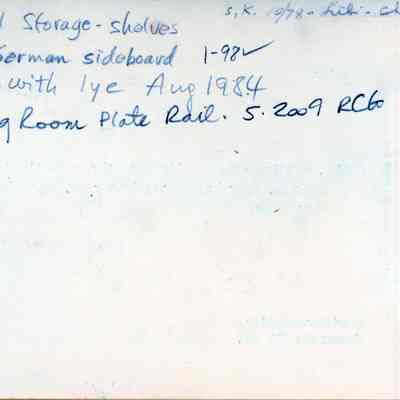 S.K. 10/78 -
Storage - shelves
German sideboard 1-98✓
with lye Aug 1984
g Room Plate Rail. 5.2009 RCGo